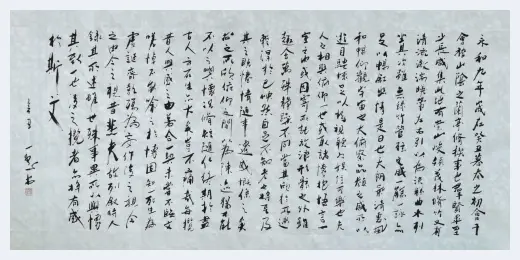 永和九年歲在癸丑暮春之初會于
會稽山陰之蘭亭修稧事也羣賢畢至
少長咸集此地有崇山峻領茂林脩竹又有
清流激湍暎帶左右引以為流觴曲水列
坐其次雖無絲竹管弦之盛一觴一詠亦
足以暢敘幽情是日也天朗氣清惠風
和暢仰觀宇宙之大俯察品類之盛所以
遊目騁懷足以極視聽之娛信可樂也夫
人之相與俯仰一世或取諸懷抱悟言一
室之內或因寄所託放浪形骸之外雖
趣舍萬殊靜躁不同當其欣於所遇
暫得於己快然自足不知老之將至及
其所之既惓情隨事遷感慨係之矣
向之所欣俛仰之間以為陳迹猶不能
不以之興懷況脩短隨化終期於盡
古人云死生亦大矣豈不痛哉每攬
昔人興感之由若合一契未嘗不臨文
嗟悼不能喻之於懷固知一死生為
虛誕齊彭殤為妄作後之視今亦由
今之視昔悲夫故列敘時人
錄其所述雖世殊事異所以興懷
其致一也後之攬者亦將有感
於斯文